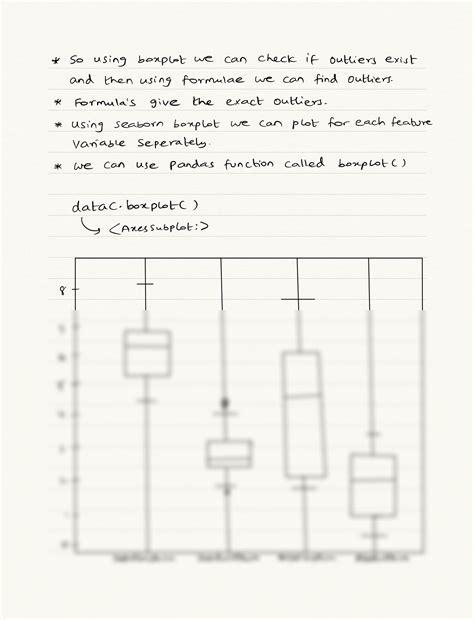 * So using boxplot we can check if outliers exist
and then using formulae we can find outliers.
* Formula's give the exact outliers.
* Using seaborn boxplot we can plot for each feature
Variable Seperately.
* we can use Pandas function called boxplot()
dataC.boxplot()
<AxesSubplot:>
8